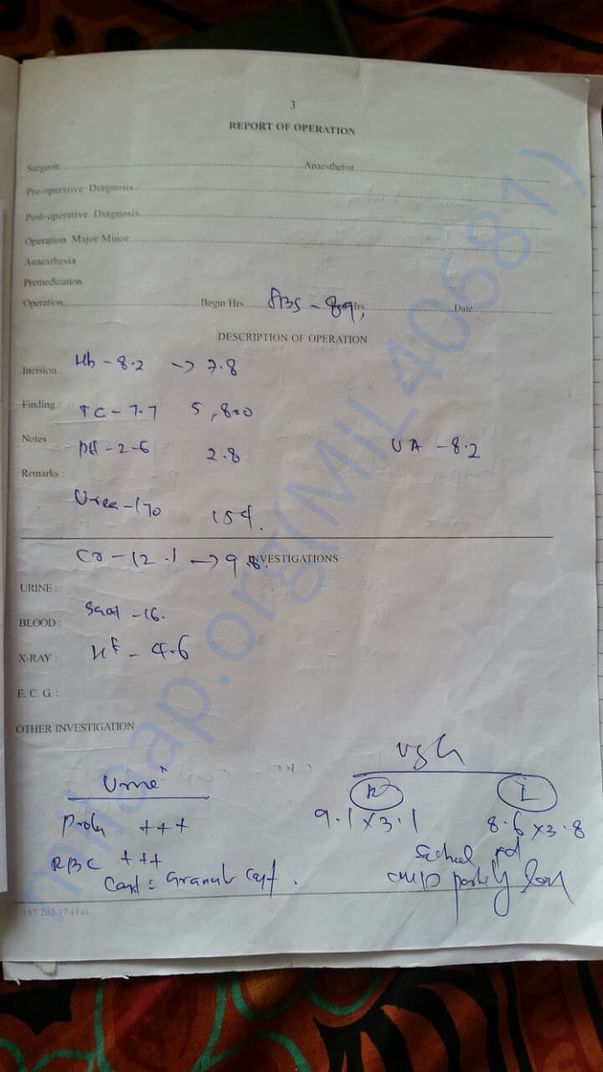 3
REPORT OF OPERATION
Surgeon Anaesthetist
Pre-operative Diagnosis
Post-operative Diagnosis
Operation Major Minor
Anaesthesia
Premedication
Operation Begin Hrs. RBS - 89, Hrs. Date
DESCRIPTION OF OPERATION
Incision : Hb - 8.2 → 7.8
Finding : TC - 7.7 5,800
Notes : - 2-6 2.8 UA - 8.2
Remarks :
Urea - 170 154.
Cr - 12.1 → 9.8. INVESTIGATIONS
URINE :
BLOOD : - 16.
X-RAY : K+ - 4.6
E. C. G :
OTHER INVESTIGATION
Urine usg
R L
9.1 x 3.1 8.6 x 3.8
Protn +++
RBC +++
Cast : Granular Cast .
CMD partially lost
milaap.org(MIL40681)